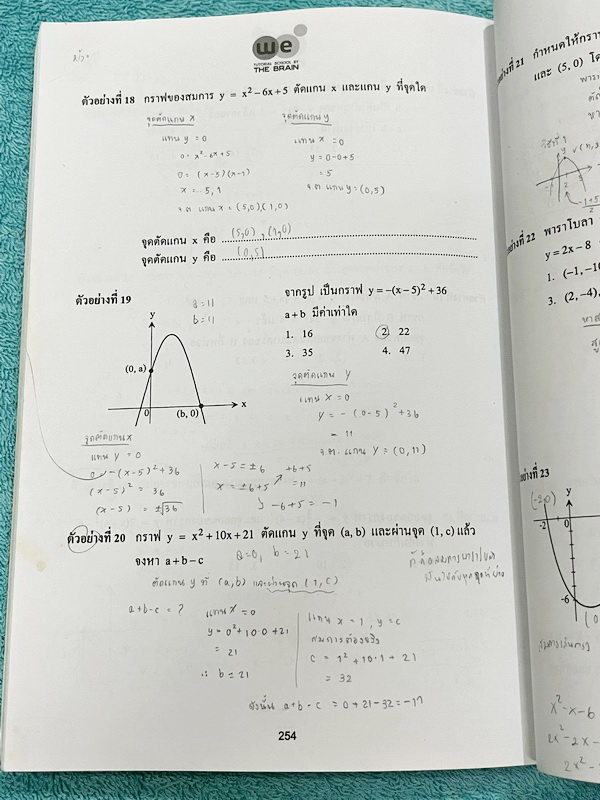 we
TUTORIAL SCHOOL BY
THE BRAIN
ตัวอย่างที่ 18 กราฟของสมการ y = x²−6x+5 ตัดแกน x และแกน y ที่จุดใด
จุดตัดแกน x
แทน y = 0
0 = x²−6x+5
0 = (x−5)(x−1)
x = 5, 1
จ.ต. แกน x = (5,0)(1,0)
จุดตัดแกน y
แทน x = 0
y = 0−0+5
= 5
จ.ต. แกน y = (0,5)
จุดตัดแกน x คือ (5,0), (1,0)
จุดตัดแกน y คือ (0,5)
ตัวอย่างที่ 19
a = 11
b = 11
y
(0, a)
0
(b, 0)
x
จากรูป เป็นกราฟ y = −(x − 5)² + 36
a + b มีค่าเท่าใด
1. 16
2. 22
3. 35
4. 47
จุดตัดแกน y
แทน x = 0
y = −(0−5)² +36
= 11
จ.ต. แกน y = (0,11)
จุดตัดแกน x
แทน y = 0
0 = −(x−5)² +36
(x−5)² = 36
(x−5) = ±√36
x−5 = ±6
x = ±6+5
+6+5
= 11
−6+5 = −1
ตัวอย่างที่ 20 กราฟ y = x² + 10x + 21 ตัดแกน y ที่จุด (a, b) และผ่านจุด (1, c) แล้ว
จงหา a + b − c
a=0, b = 21
ตัดแกน y ที่ (a,b) และผ่านจุด (1,c)
a+b−c = ?
แทน x = 0
y = 0²+10·0+21
= 21
∴ b = 21
แทน x = 1, y = c
สมการต้องจริง
c = 1²+10·1+21
= 32
ดังนั้น a+b−c = 0+21−32 = −11
254
ตัวอย่างที่ 21 กำหนดให้กรา
และ (5, 0) โด
ตัวอย่างที่ 22 พาราโบลา
y = 2x − 8
1. (−1, −10
3. (2, −4),
ตัวอย่างที่ 23
(−2,0)
y
−2
0
−6
x²−x−6
2x²−2x−
2x²−